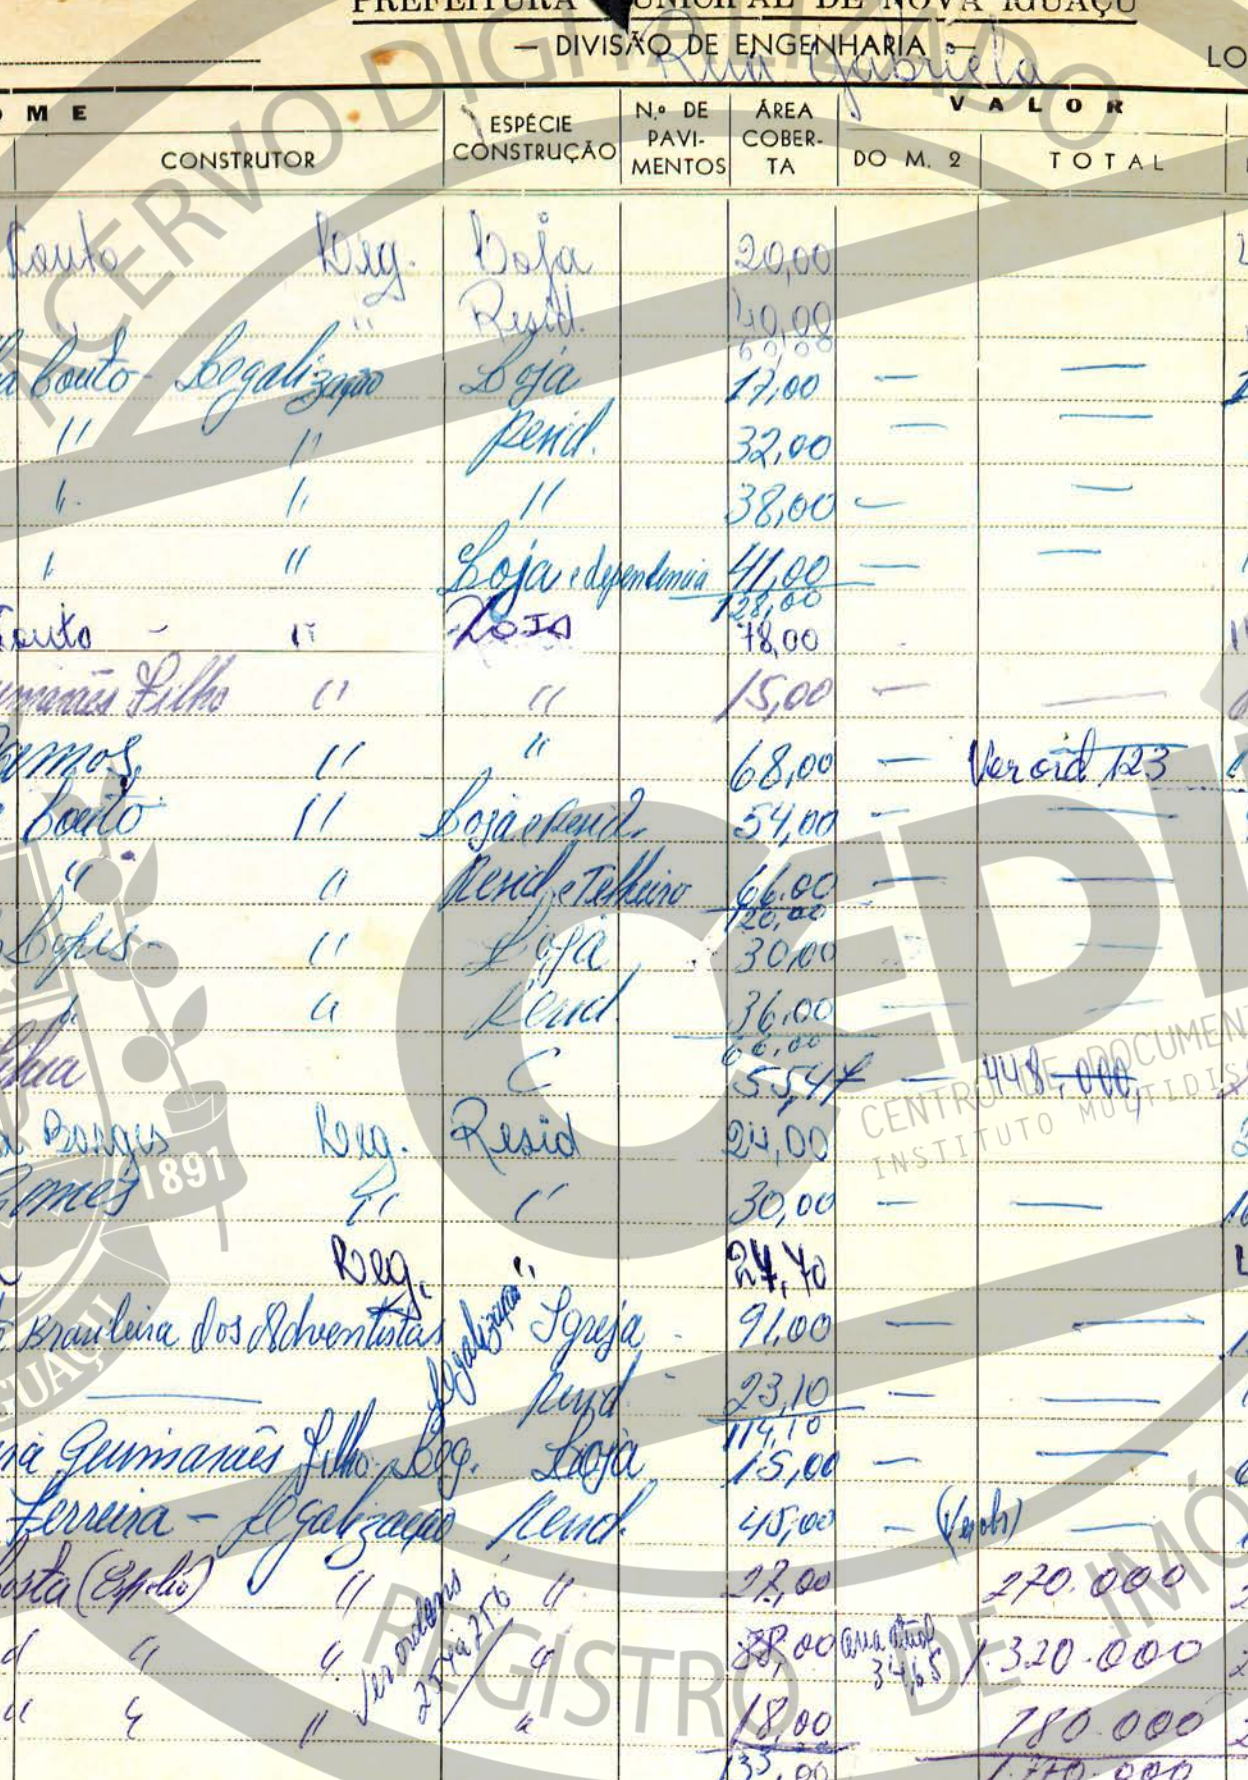 PREFEITURA MUNICIPAL DE NOVA IGUAÇU
— DIVISÃO DE ENGENHARIA — LO
Rua Gabriela
O M E V A L O R
CONSTRUTOR ESPÉCIE CONSTRUÇÃO N.º DE PAVI-MENTOS ÁREA COBER-TA DO M. 2 TOTAL
Couto Leg. Loja 20,00
" Resid. 40,00
60,00
Couto - Legalização Loja 17,00 — —
" " Resid. 32,00 — —
" " " 38,00 — —
" " Loja e dependencia 41,00 — —
128,00
Couto - " Loja 78,00
Guimarães Filho " " 15,00 — —
Ramos " " 68,00 — Ver ord 123
Couto " Loja e Resid. 54,00 — —
" " Resid. e Telheiro 66,00 — —
120,00
Lopes - " Loja 30,00 —
" " Resid. 36,00 — —
66,00
C 55,47 — 448.000,
Borges Leg. Resid 24,00
Gomes " " 30,00 — —
Leg. " 27,70
Brasileira dos Adventistas Legalização Igreja - 91,00 — —
— Resid - 23,10 — —
114,10
Guimarães Filho - Leg. Loja 15,00 — —
Ferreira - Legalização Resid. 45,00 — —
Costa (Espolio) " " 27,00 270.000
" " " 88,00 área 34,65 1.320.000
" " " 18,00 180.000
133,00 1.770.000
ACERVO DIGITALIZADO
CEDI
CENTRO DE DOCUMEN
INSTITUTO MULTIDIS
1891
GUAÇU
REGISTRO DE IMÓ